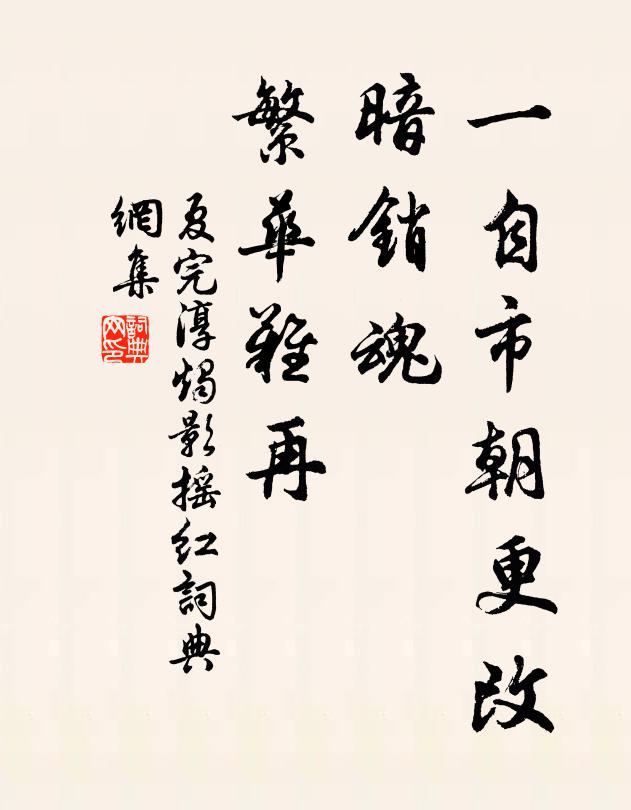 一自市朝更改
暗銷魂
繁華難再
夏完淳燭影摇紅詞典
網集
詞典
网印